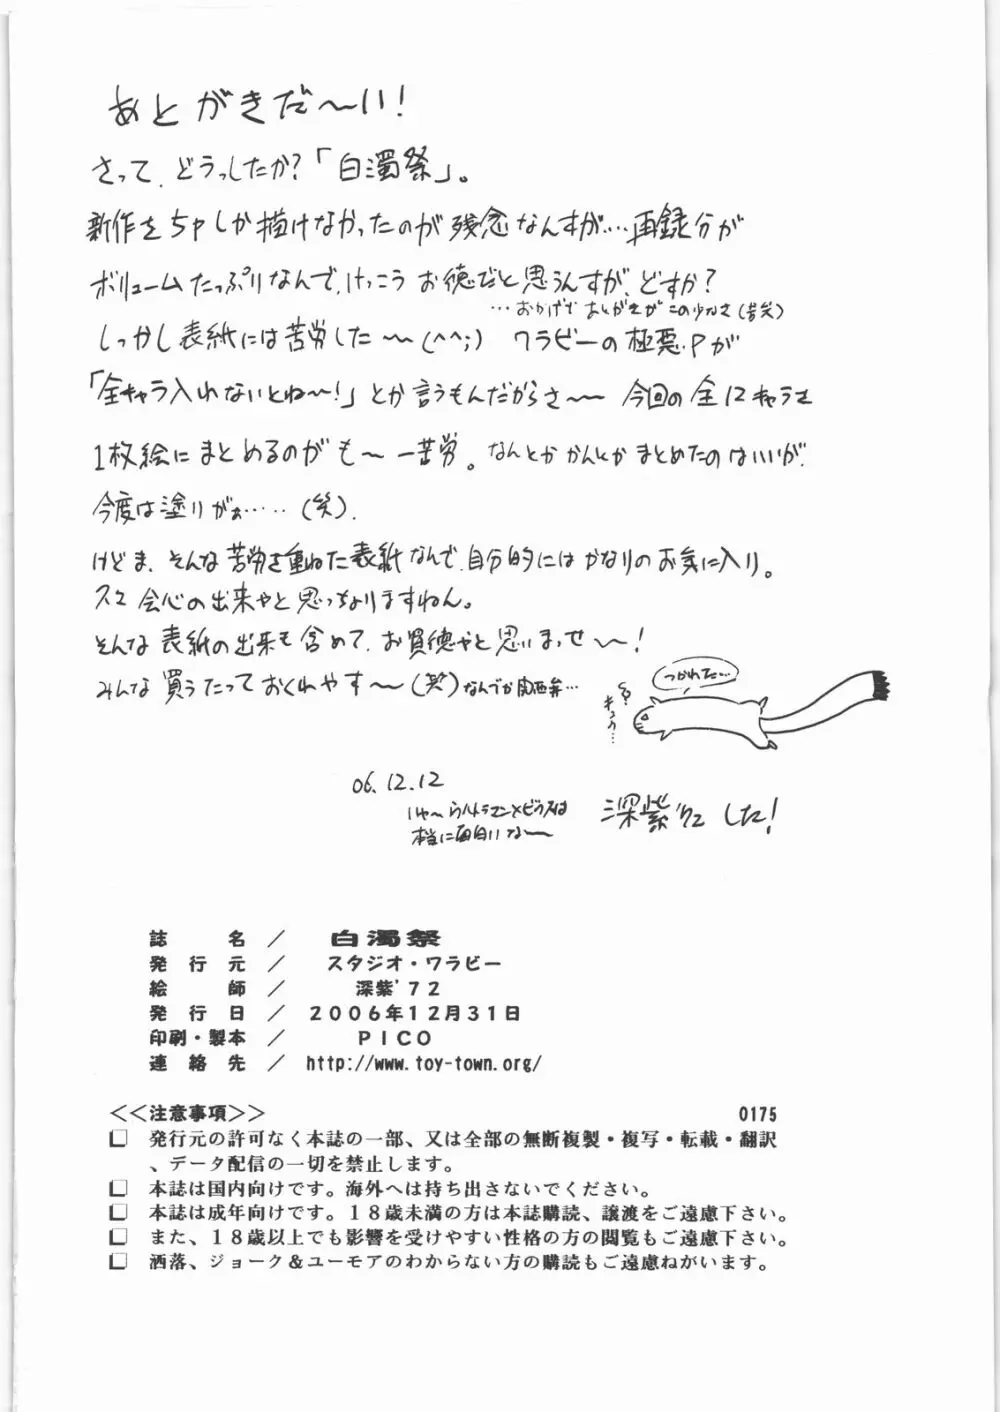 あとがきだ〜い!
さって、どうっしたか?「白濁祭」。
新作をちょしか描けなかったのが残念なんすが…、再録分が
ボリュームたっぷりなんで、けっこうお徳だと思うんすが、どすか?
…おかげであとがきがこの少なさ(苦笑)
しっかし表紙には苦労した〜(^^;) ワラビーの極悪Pが
「全キャラ入れないとね〜!」とか言うもんだからさ〜 今回の全12キャラを
1枚絵にまとめるのがも〜一苦労。なんとかかんとかまとめたのはいいが、
今度は塗りがぁ……(笑)。
けどま、そんな苦労を重ねた表紙なんで、自分的にはかなりのお気に入り。
会心の出来やと思っちょりますねん。
そんな表紙の出来も含めて、お買徳やと思いまっせ〜!
みんな買うたっておくれやす〜(笑)なんでか関西弁…
つかれた…
キュウ…
06.12.12
いや〜ウルトラマンメビウスは
本当に面白いな〜
深紫'72でした!
誌名/ 白濁祭
発行元/ スタジオ・ワラビー
絵師/ 深紫'72
発行日/ 2006年12月31日
印刷・製本/ PICO
連絡先/ http://www.toy-town.org/
<<注意事項>> 0175
□ 発行元の許可なく本誌の一部、又は全部の無断複製・複写・転載・翻訳
、データ配信の一切を禁止します。
□ 本誌は国内向けです。海外へは持ち出さないでください。
□ 本誌は成年向けです。18歳未満の方は本誌購読、譲渡をご遠慮下さい。
□ また、18歳以上でも影響を受けやすい性格の方の閲覧もご遠慮下さい。
□ 洒落、ジョーク&ユーモアのわからない方の購読もご遠慮ねがいます。